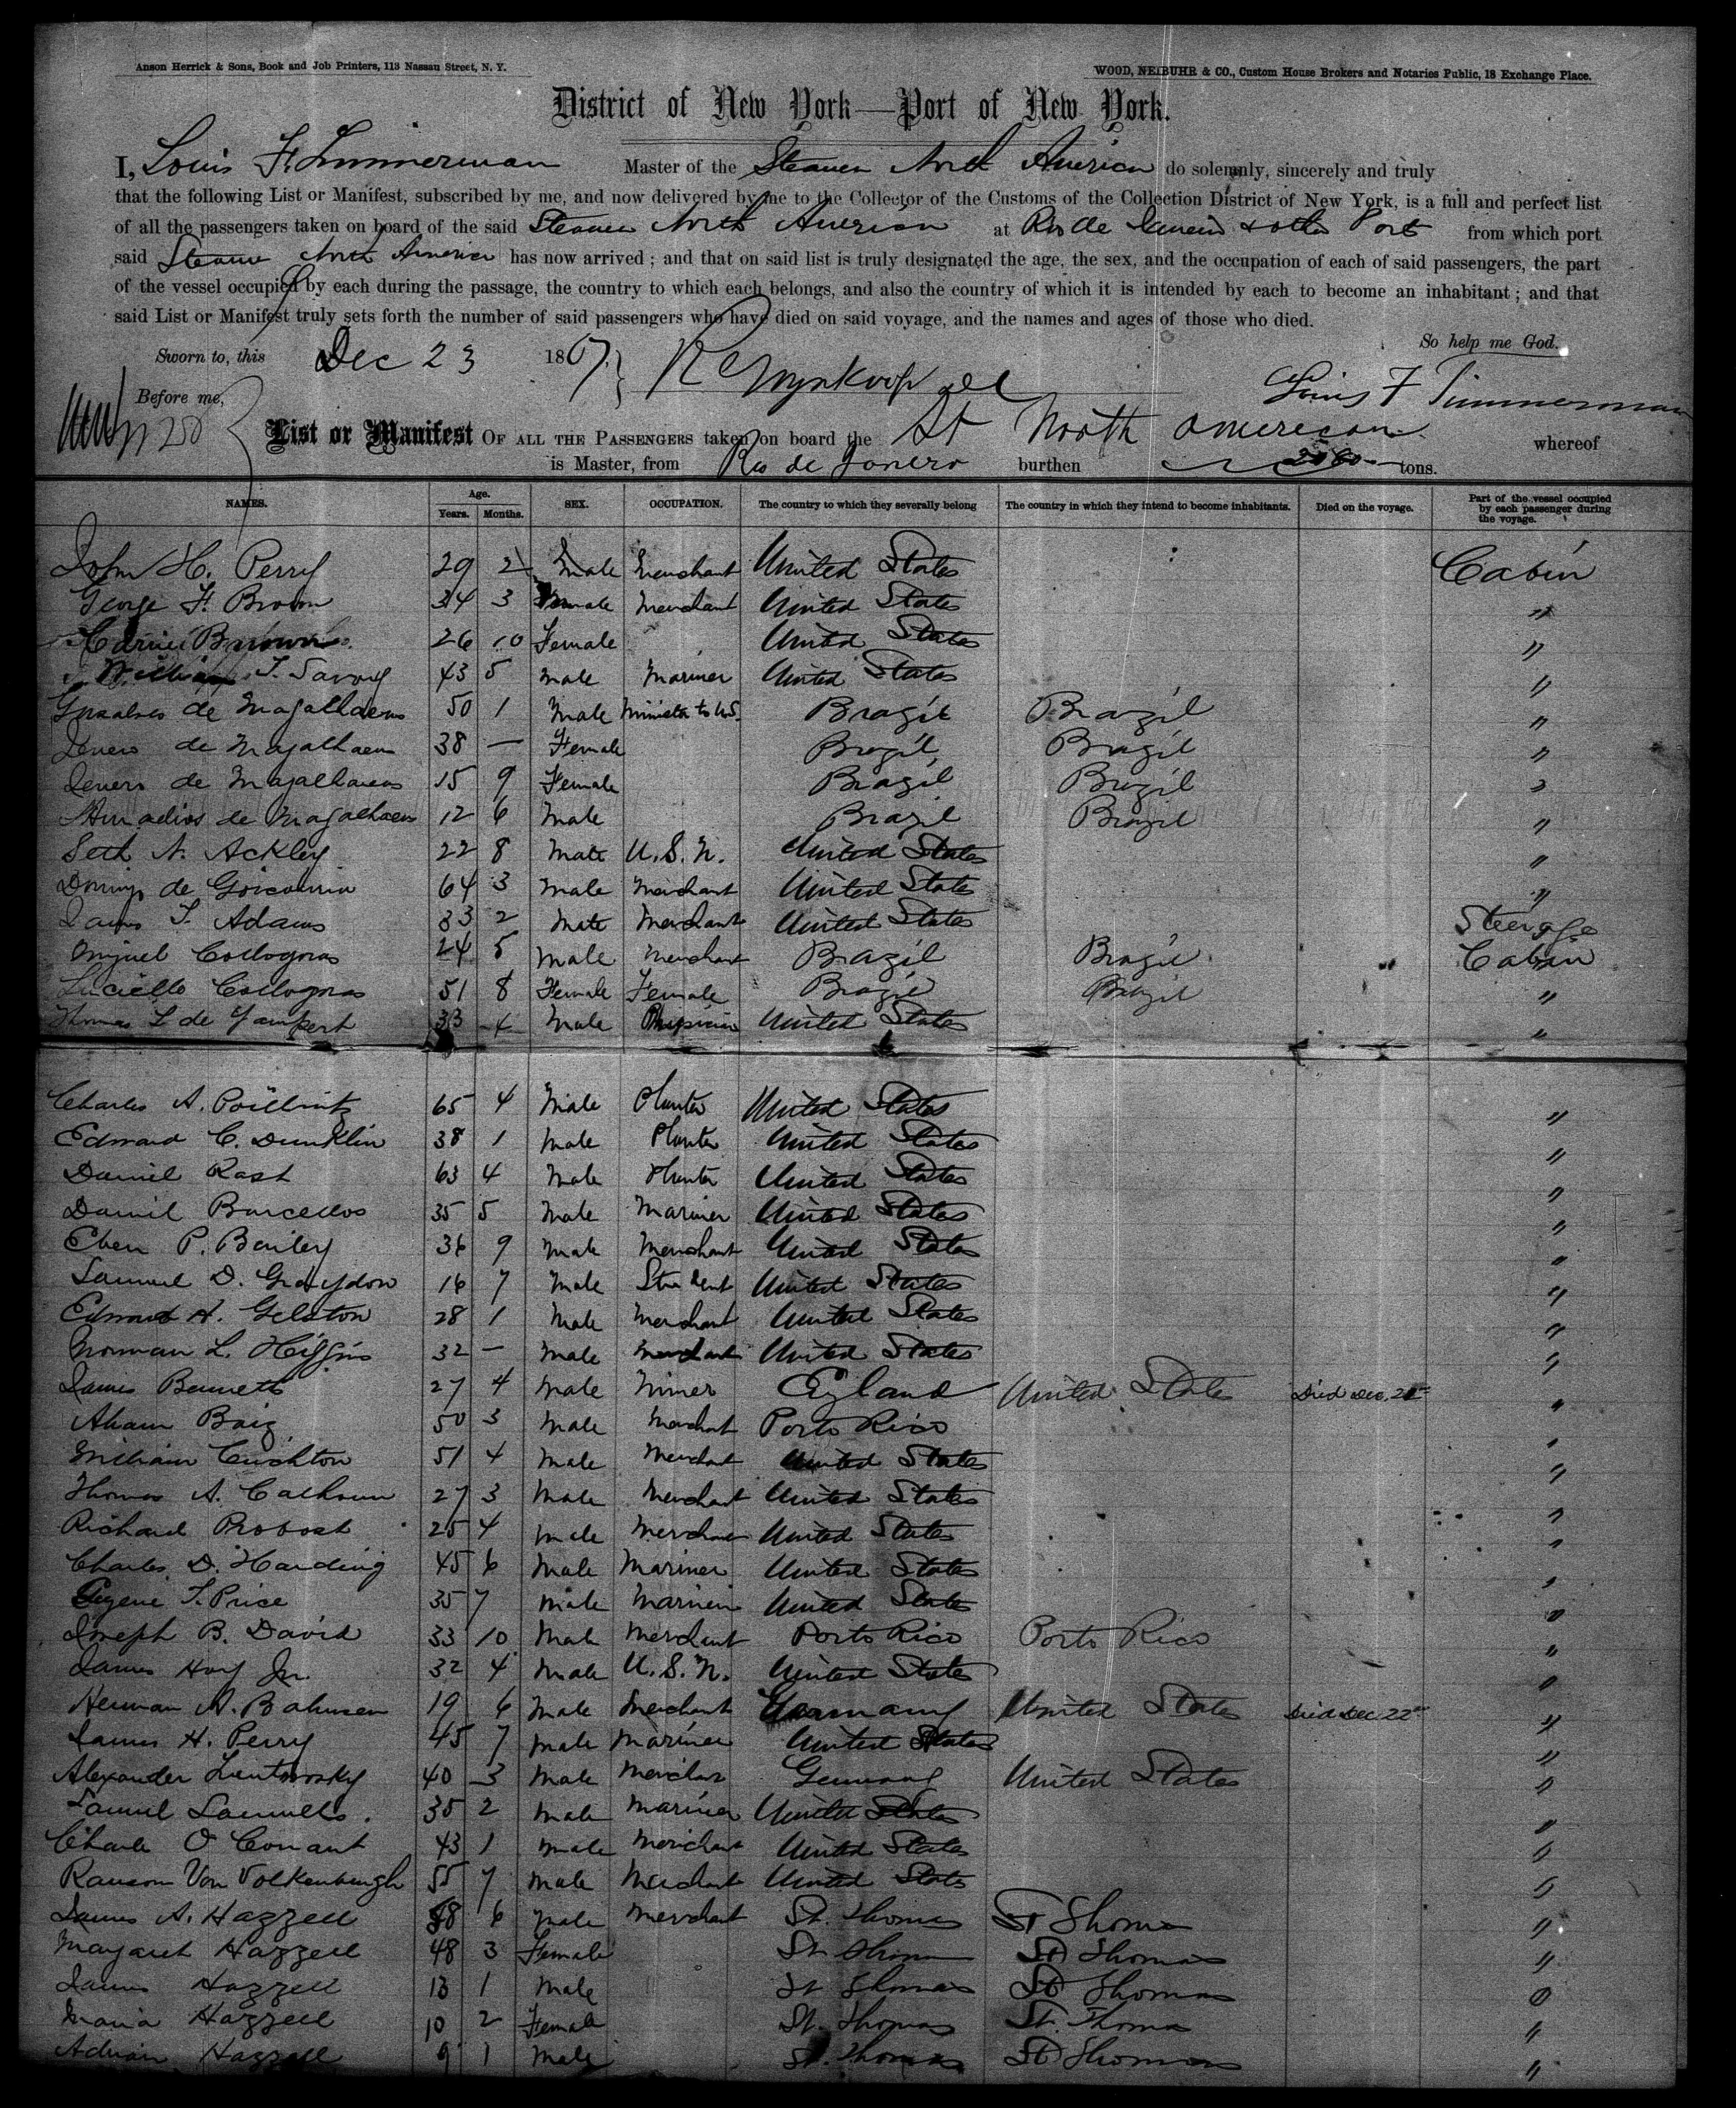 Anson Herrick & Sons, Book and Job Printers, 113 Nassau Street, N. Y.
WOOD, NEIBUHR & CO., Custom House Brokers and Notaries Public, 18 Exchange Place.
District of New York—Port of New York.
I, Louis F. Timmerman Master of the Steamer North American do solemnly, sincerely and truly
that the following List or Manifest, subscribed by me, and now delivered by me to the Collector of the Customs of the Collection District of New York, is a full and perfect list
of all the passengers taken on board of the said Steamer North American at Rio de Janeiro & other Ports from which port
said Steamer North America has now arrived; and that on said list is truly designated the age, the sex, and the occupation of each of said passengers, the part
of the vessel occupied by each during the passage, the country to which each belongs, and also the country of which it is intended by each to become an inhabitant; and that
said List or Manifest truly sets forth the number of said passengers who have died on said voyage, and the names and ages of those who died.
So help me God.
Sworn to, this Dec 23 1867
Before me,
Louis F Timmerman
List or Manifest OF ALL THE PASSENGERS taken on board the St North American whereof
is Master, from Rio de Janero burthen tons.
NAMES. Age. Years. Months. SEX. OCCUPATION. The country to which they severally belong The country in which they intend to become inhabitants. Died on the voyage. Part of the vessel occupied by each passenger during the voyage.
John H. Perry 29 2 Male Merchant United States Cabin
George F. Brown 34 3 male Merchant United States "
Carrie Brown 26 10 Female United States "
William T. Savoy 43 5 Male Mariner United States "
de Magalhaens 50 1 Male Minister to U.S. Brazil Brazil "
de Magalhaens 38 — Female Brazil Brazil "
de Magalhaens 15 9 Female Brazil Brazil "
de Magalhaens 12 6 Male Brazil Brazil "
Seth A. Ackley 22 8 Male U.S.N. United States "
Domingo de Goicouria 64 3 Male Merchant United States "
James T. Adams 33 2 Male Merchant United States Steerage
Miguel Collogras 24 5 Male Merchant Brazil Brazil Cabin
Luciello Collogras 51 8 Female Female Brazil Brazil "
Thomas L de 33 4 Male Physician United States "
Charles A. 65 4 Male Planter United States "
Edward C. Dunklin 38 1 Male Planter United States "
Daniel Rast 63 4 Male Planter United States "
Daniel Barcellos 35 5 Male Mariner United States "
Eben P. Bailey 36 9 Male Merchant United States "
Samuel D. Graydon 16 7 Male Student United States "
Edward H. Gelston 28 1 Male Merchant United States "
Norman L. Higgins 32 — Male Merchant United States "
James Bennett 27 4 Male Miner England United States Died Dec. 21st "
Baiz 50 3 Male Merchant Porto Rico "
William Cushton 51 4 Male Merchant United States "
Thomas A. Calhoun 27 3 Male Merchant United States "
Richard Probost 25 4 Male Merchant United States "
Charles D. Harding 45 6 Male Mariner United States "
Eugene T. Price 35 7 Male Mariner United States "
Joseph B. David 33 10 Male Merchant Porto Rico Porto Rico "
James Hoy Jr. 32 4 Male U.S.N. United States "
Herman A. Bahnsen 19 6 Male Merchant Germany United States Died Dec 22nd "
James H. Perry 45 7 Male Mariner United States "
Alexander 40 3 Male Merchant Germany United States "
Samuel Samuels 35 2 Male Mariner United States "
Charles O Conant 43 1 Male Merchant United States "
Ransom Van Volkenburgh 55 7 Male Merchant United States "
James A. Hazzell 58 6 Male Merchant St. Thomas St Thomas "
Margaret Hazzell 48 3 Female St. Thomas St Thomas "
James Hazzell 13 1 Male St Thomas St Thomas "
Maria Hazzell 10 2 Female St. Thomas St. Thomas "
Adrian Hazzell 9 1 Male St. Thomas St Thomas "